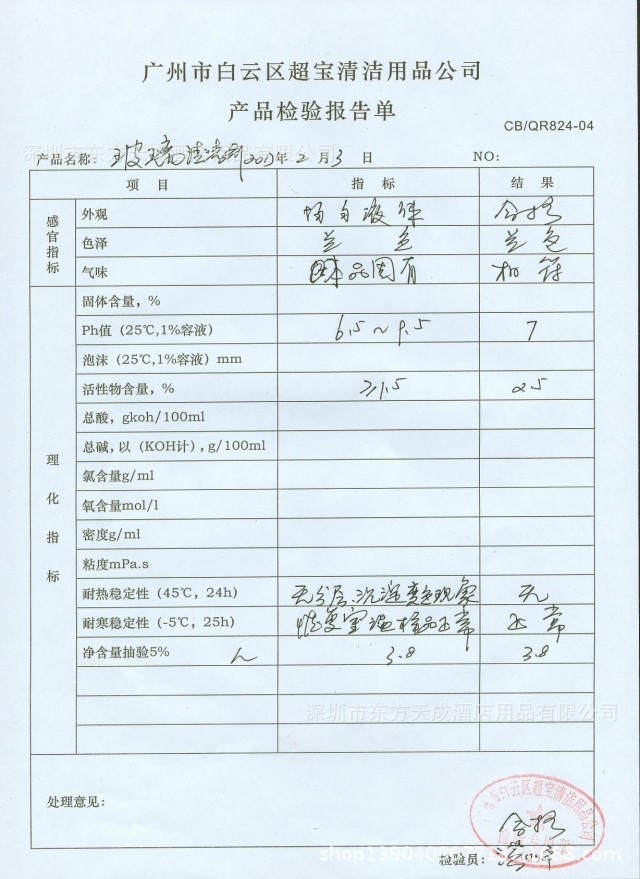 广州市白云区超宝清洁用品公司
产品检验报告单
CB/QR824-04
深圳市东方天成酒店用品有限公司
产品名称: 玻璃清洁剂 年 2 月 3 日 NO:
项 目 指 标 结 果
感官指标
外观 均匀液体 合格
色泽 兰 色 兰色
气味 品固有 相 符
理化指标
固体含量,%
Ph值(25℃,1%容液) 6.5~9.5 7
泡沫(25℃,1%容液)mm
活性物含量,% ≥1.5 25
总酸,gkoh/100ml
总碱,以(KOH计),g/100ml
氯含量g/ml
氧含量mol/l
密度g/ml
粘度mPa.s
耐热稳定性(45℃,24h) 无分层、沉淀变色现象 无
耐寒稳定性(-5℃,25h) 恢复室温样品正常 正常
净含量抽验5% 3.8 3.8
深圳市东方天成酒店用品有限公司
处理意见:
广州市白云区超宝清洁用品公司
合格
检验员: